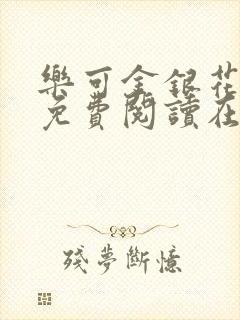 樂可金銀花
免費閱讀在
殘夢斷憶